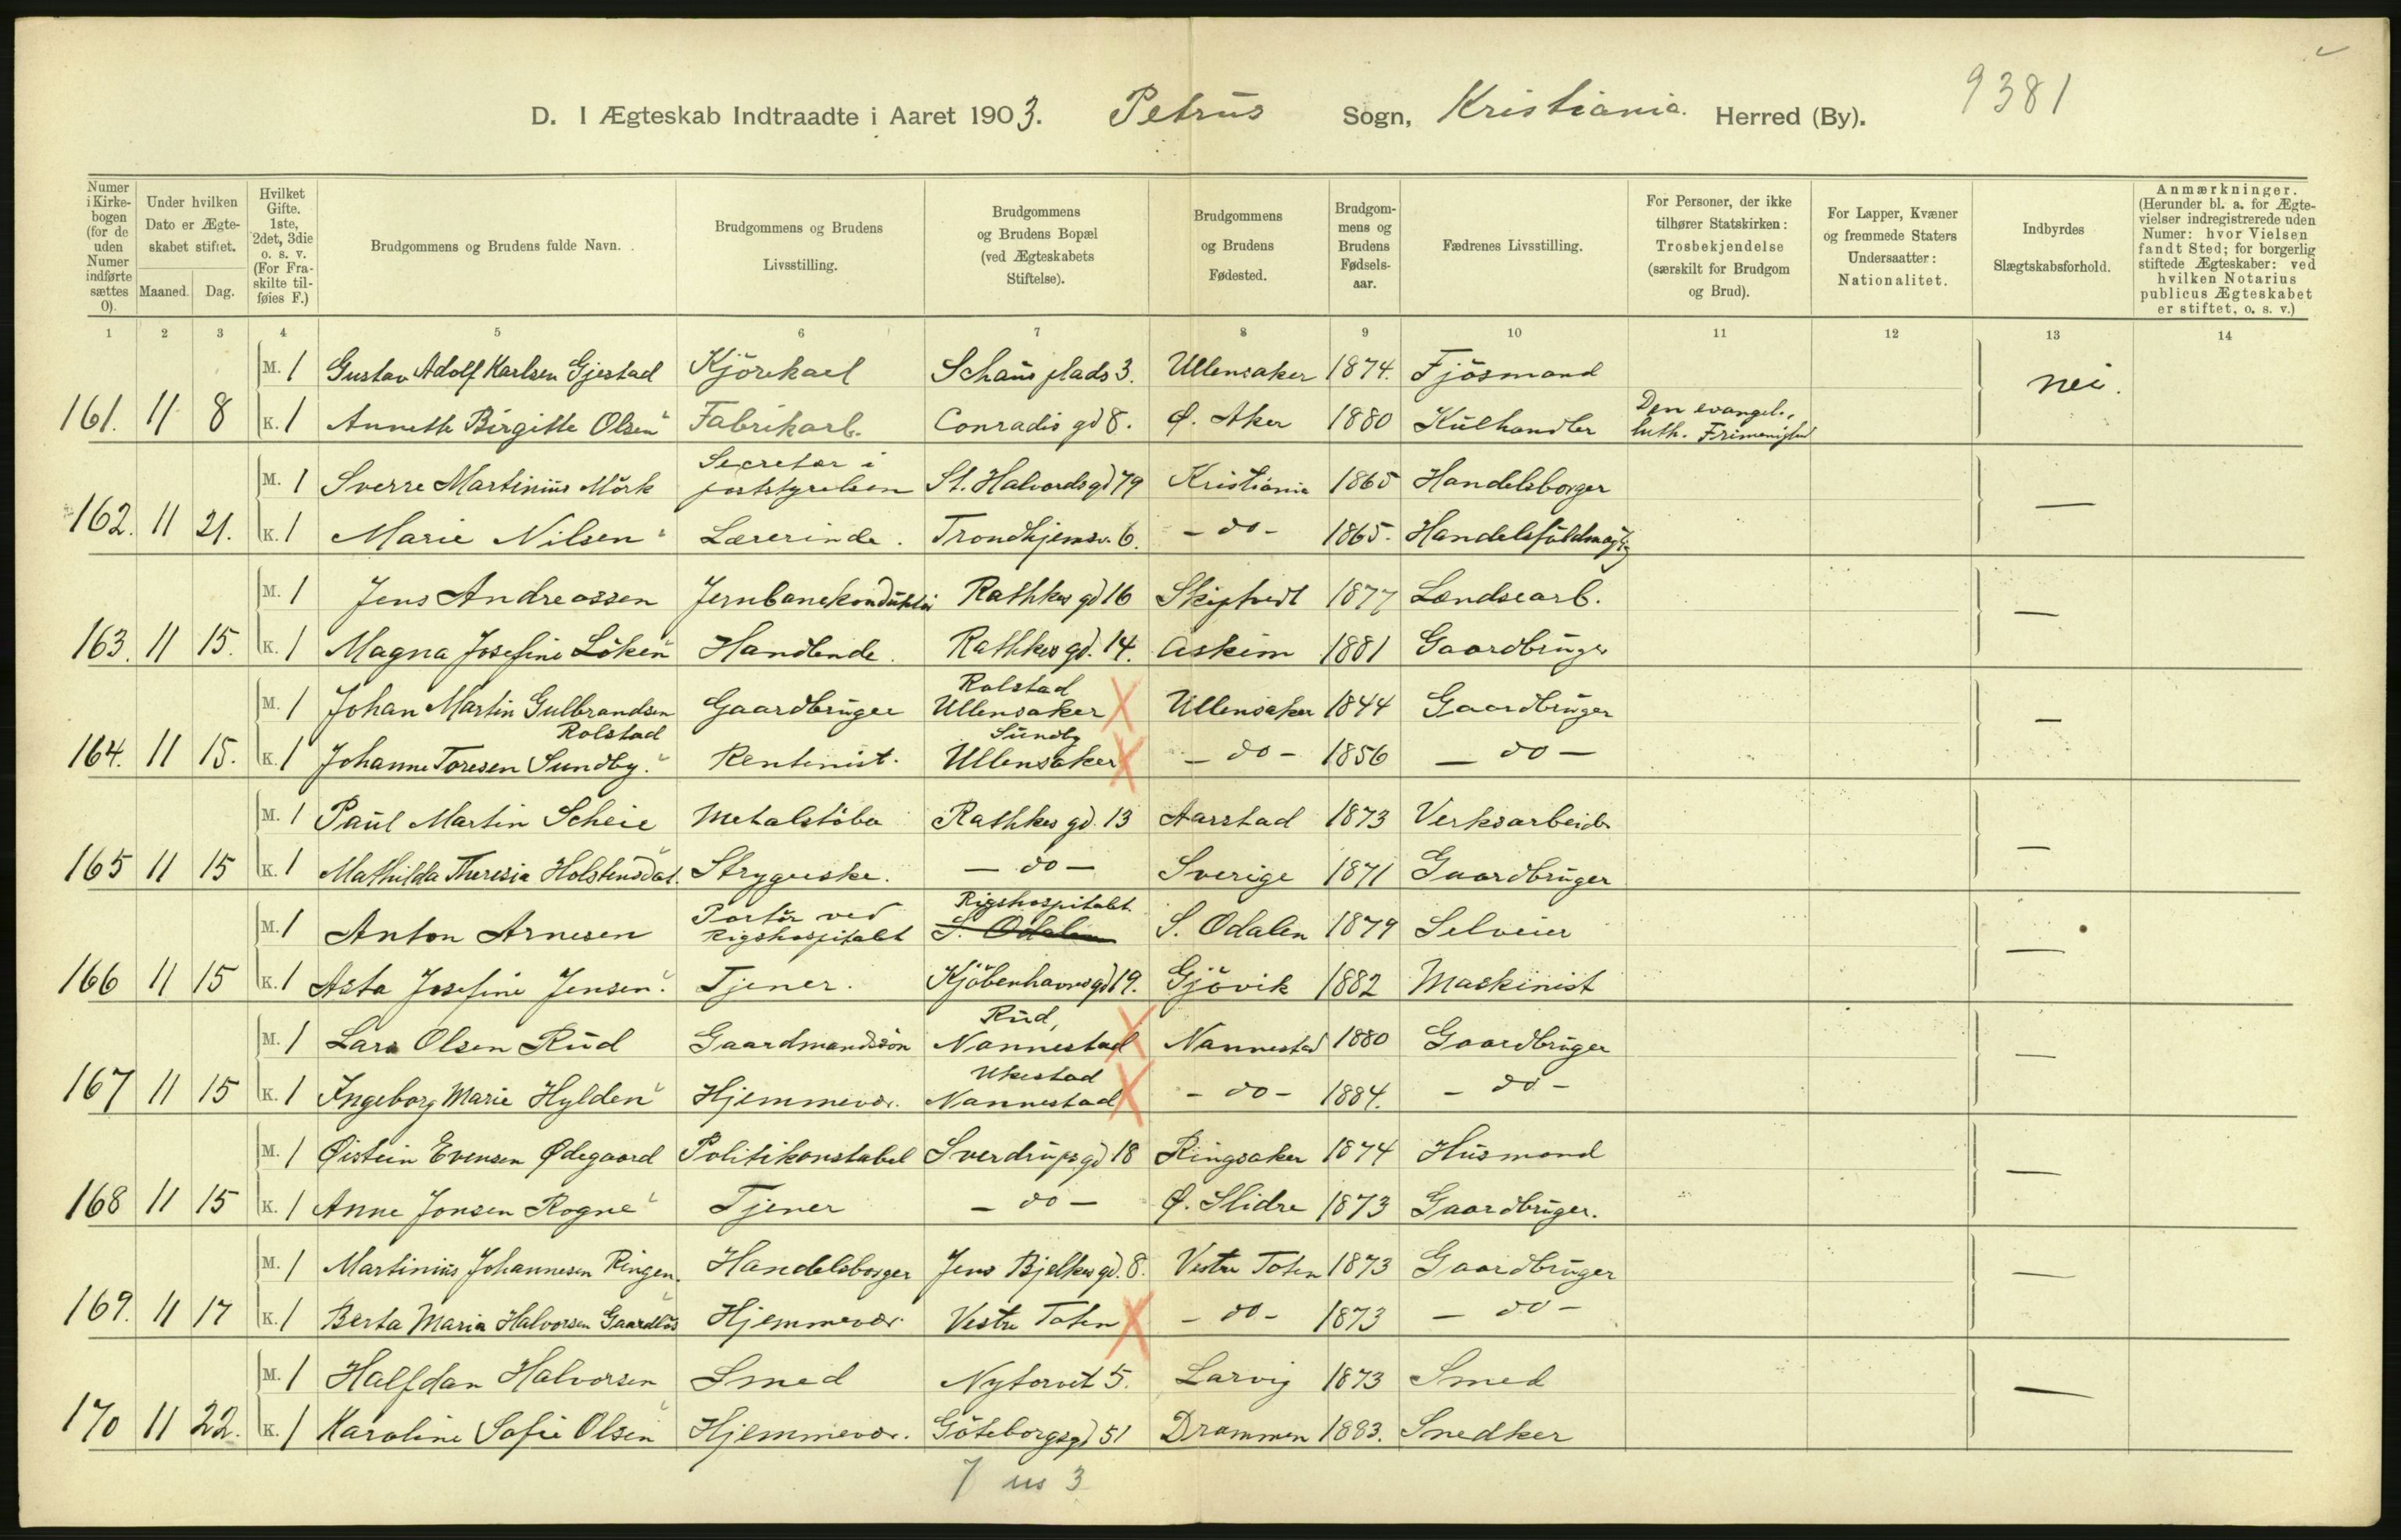 9381
D. I Ægteskab Indtraadte i Aaret 1903. Petrus Sogn, Kristiania. Herred (By).
Numer i Kirke-bogen (for de uden Numer indførte sættes 0). | Under hvilken Dato er Ægte-skabet stiftet. Maaned. Dag. | Hvilket Gifte. 1ste, 2det, 3die o. s. v. (For Fra-skilte til-føies F.) | Brudgommens og Brudens fulde Navn. | Brudgommens og Brudens Livsstilling. | Brudgommens og Brudens Bopæl (ved Ægteskabets Stiftelse). | Brudgommens og Brudens Fødested. | Brudgom-mens og Brudens Fødsels-aar. | Fædrenes Livsstilling. | For Personer, der ikke tilhører Statskirken: Trosbekjendelse (særskilt for Brudgom og Brud). | For Lapper, Kvæner og fremmede Staters Undersaatter: Nationalitet. | Indbyrdes Slægtskabsforhold. | Anmærkninger. (Herunder bl. a. for Ægte-vielser indregistrerede uden Numer: hvor Vielsen fandt Sted; for borgerlig stiftede Ægteskaber: ved hvilken Notarius publicus Ægteskabet er stiftet, o. s. v.)
1 2 3 4 5 6 7 8 9 10 11 12 13 14
M. 1 Gustav Adolf Karlsen Gjestad Kjörekarl Schaus plads 3. Ullensaker 1874. Fjösmand nei.
161. 11 8 K. 1 Annette Birgitte Olsen Fabrikarb. Conradis gd 8. Ø. Aker 1880 Kulhandler Den evangel. luth. Frimenighed
M. 1 Sverre Martinius Mörk Secretær i poststyrelsen St. Halvords gd 79 Kristiania 1865 Handelsborger —
162. 11 21. K. 1 Marie Nilsen Lærerinde. Trondhjemsv. 6. - do - 1865. Handelsfuldmægtig
M. 1 Jens Andreassen Jernbanekonduktör Rathkes gd 16 Skiptvedt 1877 Landsearb. —
163. 11 15. K. 1 Magna Josefine Löken Handlende. Rathkes gd. 14. Askim 1881 Gaardbruger
M. 1 Johan Martin Gulbrandsen Rolstad Gaardbruger Rolstad Ullensaker Ullensaker 1844 Gaardbruger —
164. 11 15. K. 1 Johanne Toresen Sundby. Rentenist. Sundby Ullensaker - do - 1856 - do -
M. 1 Paul Martin Scheie Metalstöber Rathkes gd. 13 Aarstad 1873 Verksarbeider —
165 11 15 K. 1 Mathilda Theresia Holstensdat. Strygerske. - do - Sverige 1871 Gaardbruger
M. 1 Anton Arnesen Portör ved Rigshospitalet Rigshospitalet S. Odalen S. Odalen 1879 Selveier —
166 11 15 K. 1 Asta Josefine Jensen. Tjener. Kjöbenhavnsgd 19. Gjövik 1882 Maskinist
M. 1 Lars Olsen Rud Gaardmandssön Rud, Nannestad Nannestad 1880 Gaardbruger —
167 11 15 K. 1 Ingeborg Marie Hylden Hjemmevær. Ukestad Nannestad - do - 1884. - do -
M. 1 Øistein Evensen Ødegaard Politikonstabel Sverdrups gd 18 Ringsaker 1874 Husmand —
168 11 15 K. 1 Anne Jonsen Rogne Tjener - do - Ø. Slidre 1873 Gaardbruger.
M. 1 Martinius Johannesen Ringen. Handelsborger Jens Bjelkes gd. 8. Vestre Toten 1873 Gaardbruger —
169. 11 17 K. 1 Berta Maria Halvorsen Gaardlös Hjemmevær. Vestre Toten - do - 1873 - do -
M. 1 Halfdan Halvorsen Smed Nytorvet 5. Larvig 1873 Smed —
170 11 22. K. 1 Karoline Sofie Olsen Hjemmevær. Göteborgsgd 51 Drammen 1883. Snedker
7 us 3